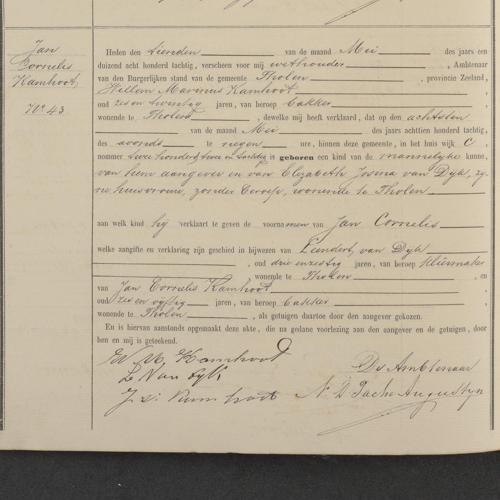 Jan
Cornelis
Kamhoot
No 43
Heden den tienden van de maand Mei des jaars een
duizend acht honderd tachtig, verscheen voor mij wethouder, Ambtenaar
van den Burgerlijken stand van de gemeente Tholen, provincie Zeeland,
Willem Marinus Kamhoot
oud zes en twintig jaren, van beroep bakker
wonende te Tholen, dewelke mij heeft verklaard, dat op den achtsten
van de maand Mei des jaars achttien honderd tachtig,
des avonds te negen ure, binnen deze gemeente, in het huis wijk C
nommer twee honderd twee en tachtig is geboren een kind van de mannelijke kunne,
van hem aangever en van Elizabeth Josina van Dijk, zij-
ne huisvrouw, zonder beroep, wonende te Tholen
aan welk kind hij verklaart te geven de voornamen van Jan Cornelis
welke aangifte en verklaring zijn geschied in bijwezen van Leendert van Dijk
, oud drie en zestig jaren, van beroep kleermaker
, wonende te Tholen, en
van Jan Cornelis Kamhoot
oud zes en vijftig jaren, van beroep bakker
wonende te Tholen, als getuigen daartoe door den aangever gekozen.
En is hiervan aanstonds opgemaakt deze akte, die na gedane voorlezing aan den aangever en de getuigen, door
hen en mij is geteekend.
W M Kamhoot
De Ambtenaar
L Van Dijk
J. C. Kamhoot